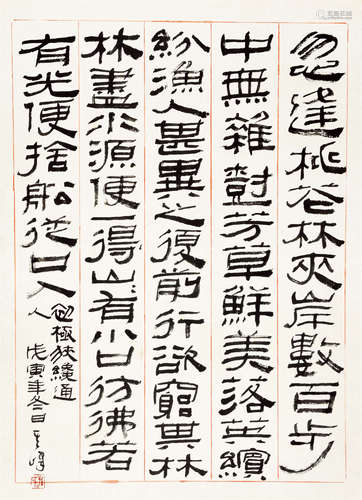 忽逢桃花林夾岸數百步
中無雜樹芳草鮮美落英繽
紛漁人甚異之復前行欲窮其林
林盡水源便一得山有小口彷彿若
有光便捨船從口入
初極狹纔通
人戊寅年冬日峰